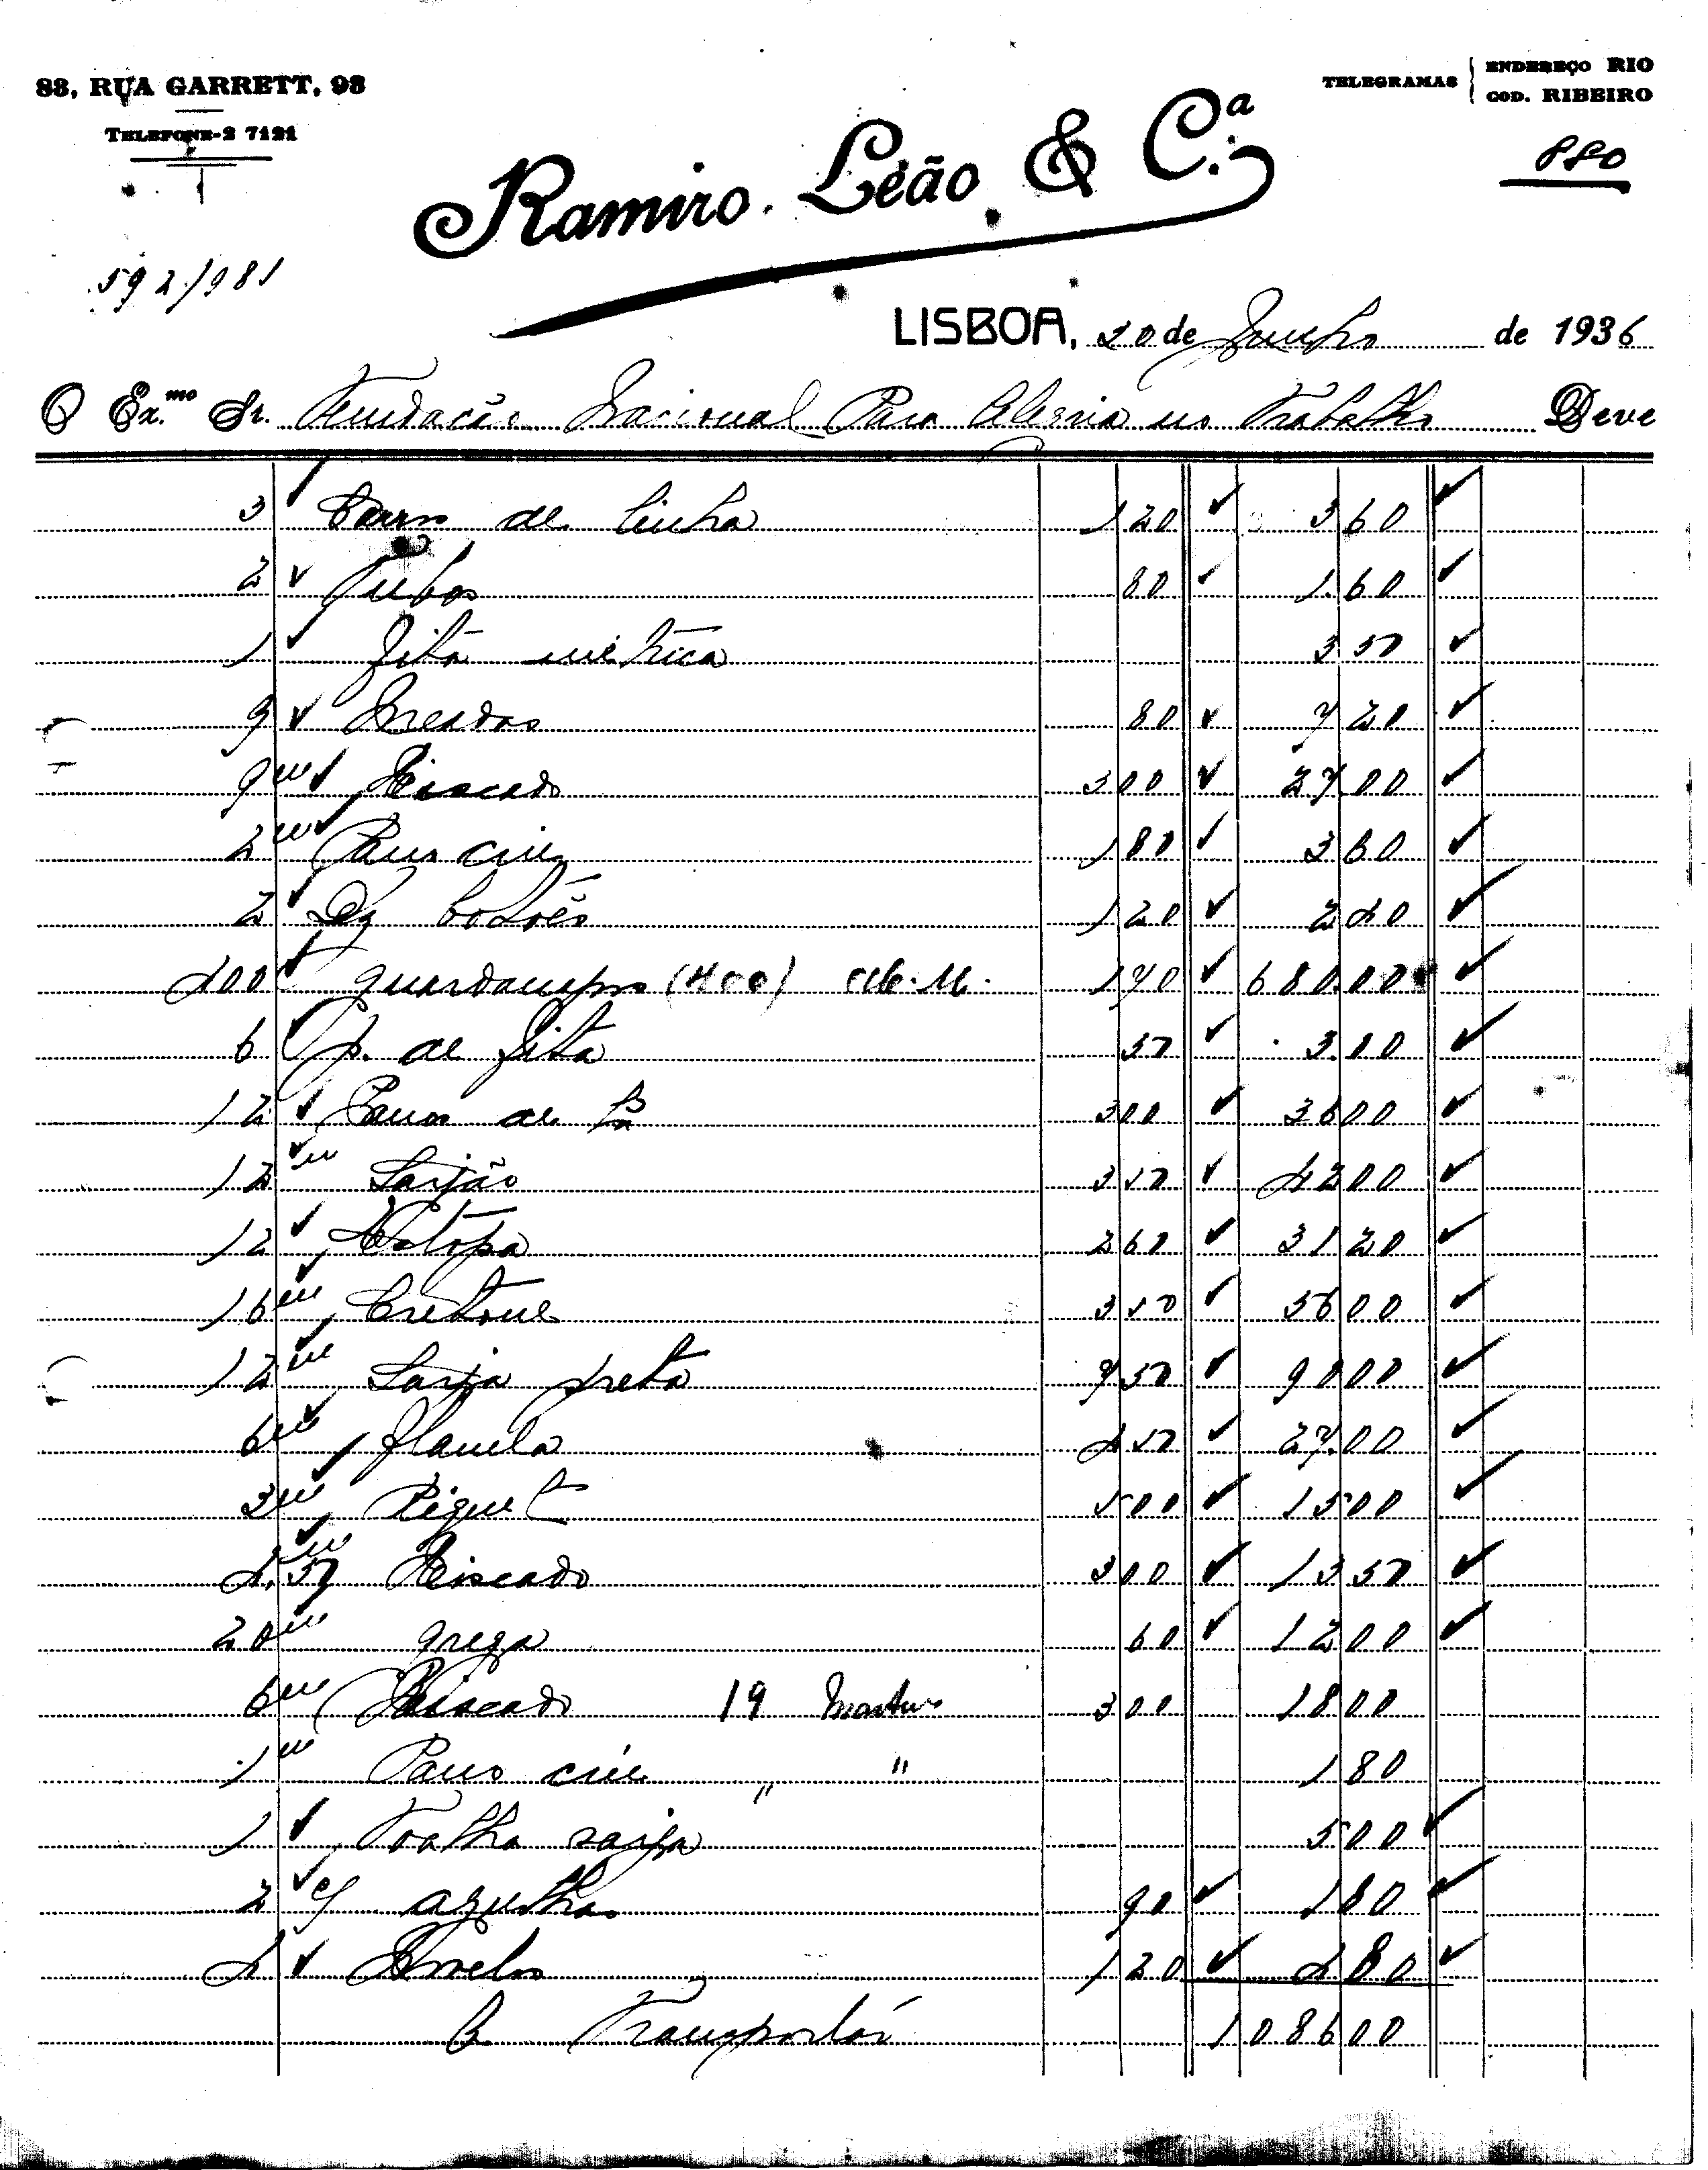 83, RUA GARRETT, 93
TELEFONE-2 7121
TELEGRAMAS ENDEREÇO RIO
COD. RIBEIRO
Ramiro Leão & C.ª
592/981
LISBOA, 20 de Junho de 1936
O Ex.mo Sr. Fundação Nacional Para Alegria no Trabalho Deve
3 Carros de linha 1 20 3 60
2 Tubos 80 1 60
1 fita métrica 3 50
9 Meadas 80 7 20
9m Riscado 3 00 27 00
2m Pano cru 1 80 3 60
2 Dz botões 1 20 2 40
400 guardanapos (400) 1 70 680 00
6 p. de fita 50 3 00
12 Panos de 3 00 36 00
12m Sarjão 3 50 42 00
12 Estopa 2 60 31 20
16m Cretone 3 50 56 00
12m Sarja preta 7 50 90 00
6m flanela 4 50 27 00
3m Piquet 5 00 15 00
4,50m Riscado 3 00 13 50
20m grega 60 12 00
6m Riscado 19 3 00 18 00
1m Pano cru " " 1 80
1 Toalha 5 00
2 c/ agulhas 90 1 80
4 Novelos 1 20 4 80
A Transportar 1 086 00